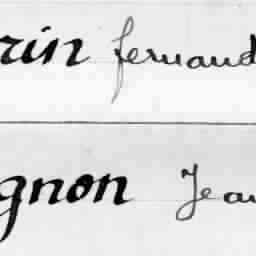 rin fernand
gnon Jean